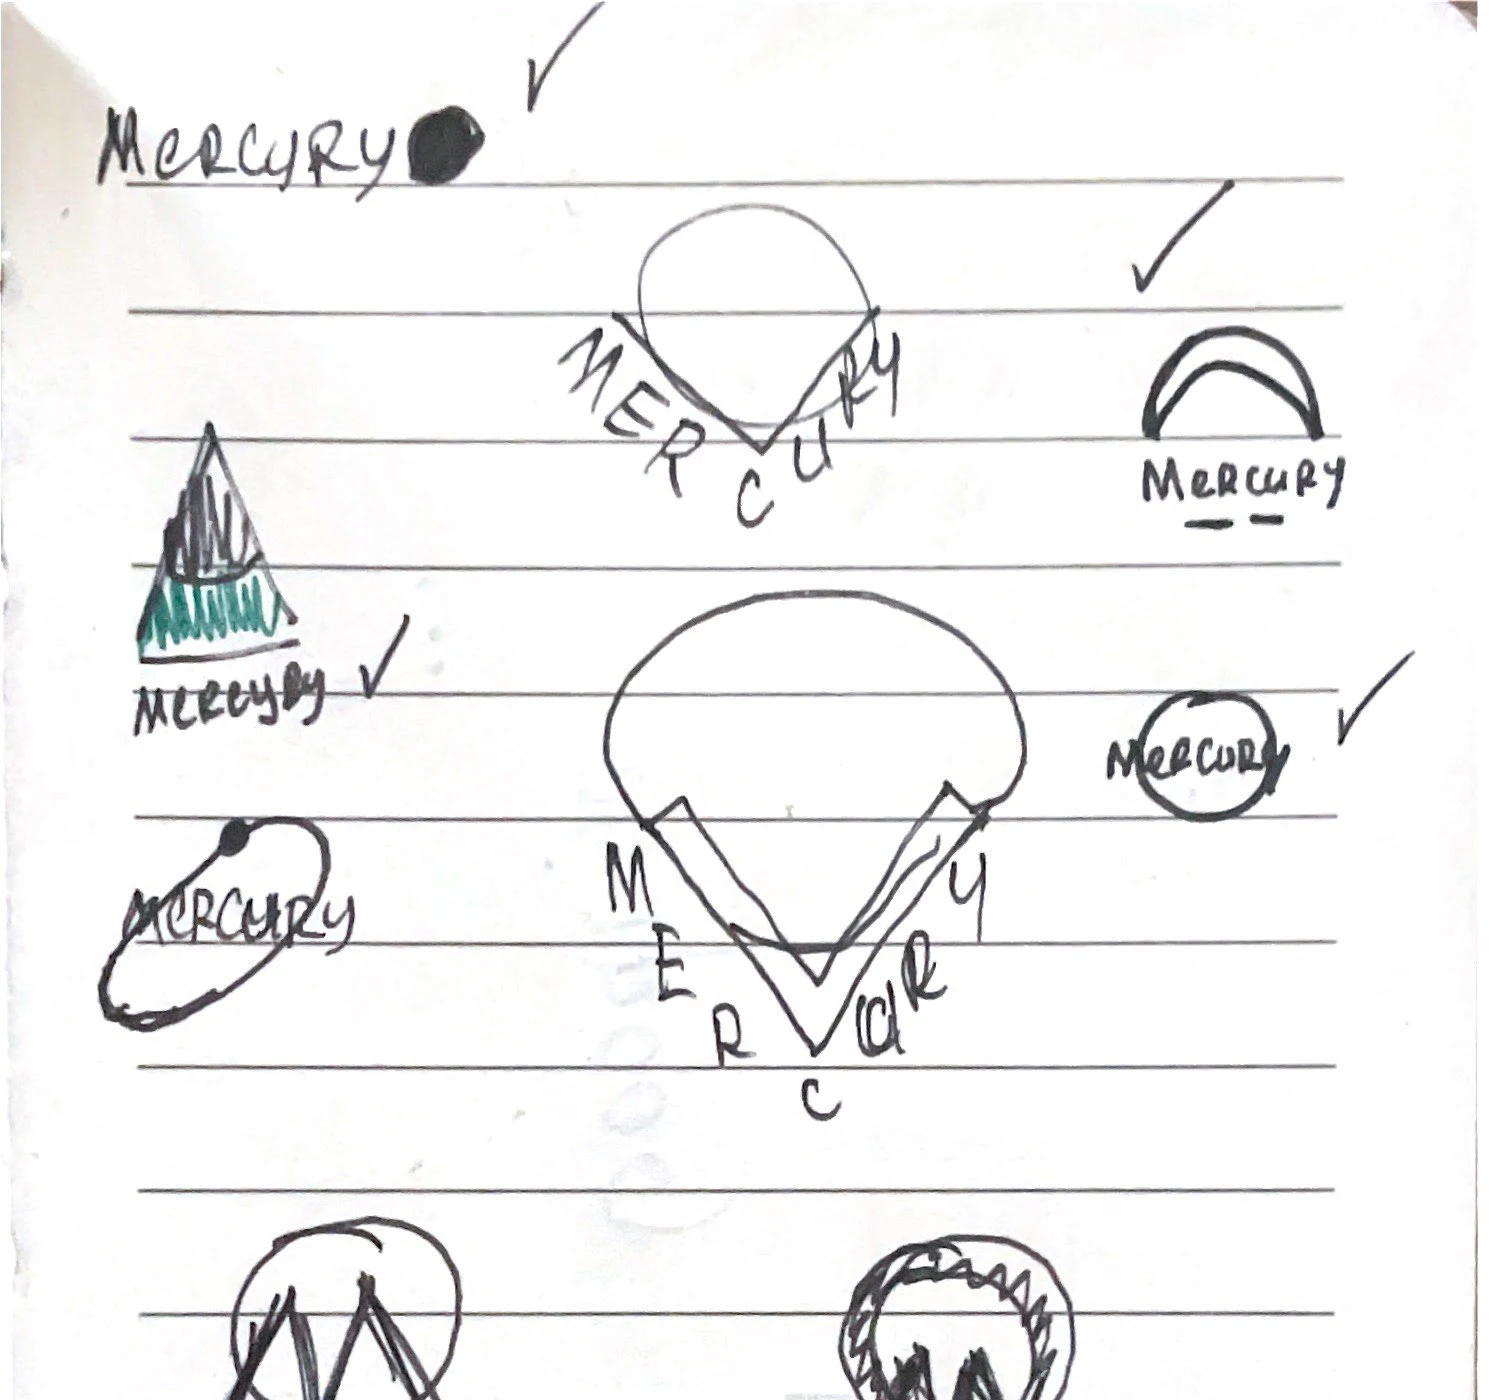 MERCURY
MERCURY
MERCURY
MERCURY
MERCURY
MERCURY
MERCURY